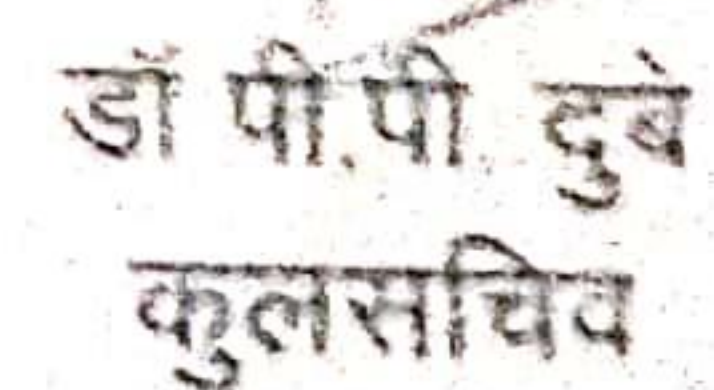 डॉ पी.पी. दुबे
कुलसचिव